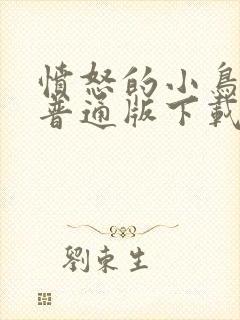 憤怒的小鳥
普通版下載
劉東生